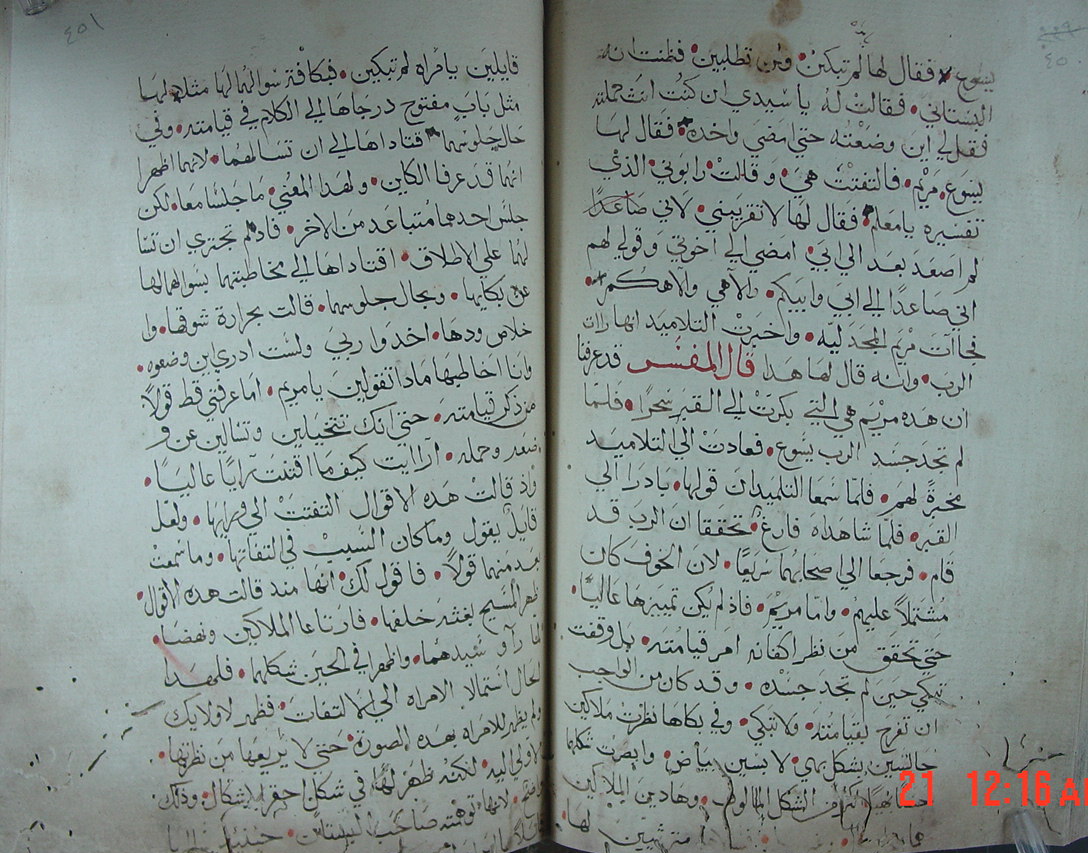 ٤٥٠
يسوع فقال لها لم تبكين ومن تطلبين فظنت انه
البستاني فقالت له يا سيدي ان كنت انت حملته
فقل لي اين وضعته حتي امضي واخده فقال لها
يسوع مريم فالتفتت هي وقالت رابوني الذي
تفسيره يا معلم فقال لها لا تقربيني لاني صاعدًا
لم اصعد بعد الي ابي امضي الي اخوتي وقولي لهم
اني صاعدًا الي ابي وابيكم والاهي والاهكم
فجاات مريم المجدليه واخبرت التلاميد انها رات
الرب وانه قال لها هدا قال المفسر قد عرفنا
ان هده مريم هي التي بكرت الي القبر سحرًا فلما
لم تجد جسد الرب يسوع فعادت الي التلاميد
مخبرةً لهم فلما سمعا التلميدان قولها بادرا الي
القبر فلما شاهداه فارغ تحققا ان الرب قد
قام فرجعا الي صحابهما سريعًا لان الخوف كان
مشتملاً عليهم واما مريم فاذ لم يكن تمييزها عاليًا
حتي تحقق من نظر اكفانه امر قيامته بل وقفت
تبكي حين لم تجد جسده وقد كان من الواجب
ان تفرح بقيامته ولا تبكي وفي بكاها نظرت ملاكين
جالسين بشكل بهي لابسين بياض وابصرت شكلهما
الشكل المالوف وهادين الملاكين
لها
٤٥١
قايلين يا امراه لم تبكين فبكافة سوالهما لها مثلا لها
مثل باب مفتوح درجاها الي الكلام في قيامته وفي
حال جلوسهما اقتاداها الي ان تسالهما لانهما اظهرا
انهما قد عرفا الكاين ولهدا المعني ما جلسا معا لكن
جلس احدهما متباعد من الاخر فاد لم تجتري ان تسا
لهما علي الاطلاق اقتاداها الي مخاطبتهما بسوالهما لها
عن بكايها وبحال جلوسهما قالت بحرارة شوقها و
خلاص ودها اخدوا ربي ولست ادري اين وضعوه
وانا اخاطبها مادا تقولين يا مريم اما عرفتي قط قولاً
من ذكر قيامته حتي انك تتخيلين وتسالين عن و
ضعه وحمله اراايت كيف ما اقتلت رايًا عاليًا
واذ قالت هده الاقوال التفتت الي ورايها ولعل
قايل يقول وما كان السبب في التفاتها وما سمعت
بعد منهما قولاً فاقول لك انها مند قالت هده الاقوال
ظهر المسيح بغتة خلفها فارتاعا الملاكين ونهضا
لما راو سيدهما واظهرا في الحين شكلهما فلهدا
الحال استمالا الامراه الي الالتفات فظهر لاولايك
ولم يظهر للامراه بهده الصوره حتي لا يريعها من نظرتها
الاولي اليه لكنه ظهر لها في شكل احقر الاشكال وذلك
لانها توهمته صاحب البستان حينيد
21 12:16 A